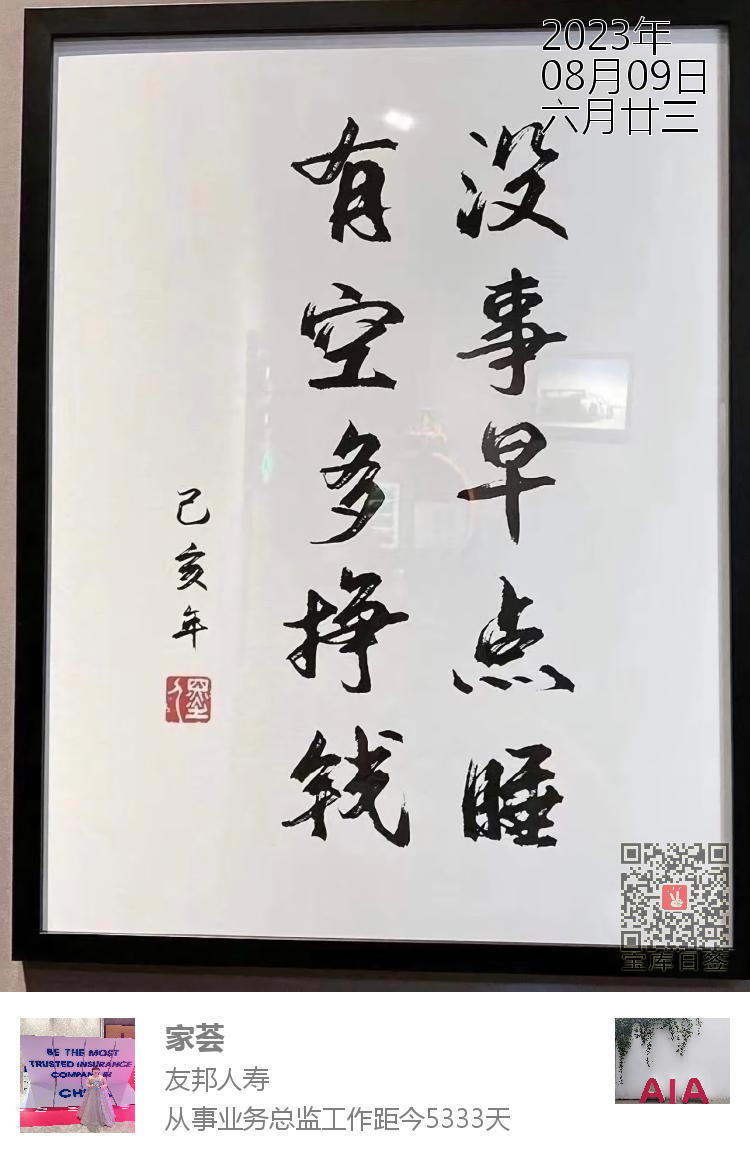 2023年
08月09日
六月廿三
没事早点睡
有空多挣钱
己亥年
宝库日签
BE THE MOST
TRUSTED INSURANCE
COMPANY IN
家荟
友邦人寿
从事业务总监工作距今5333天
AIA